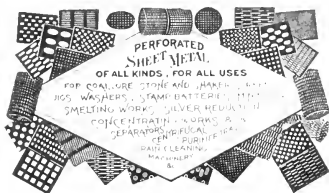 PERFORATED
SHEET METAL
OF ALL KINDS, FOR ALL USES
FOR COAL, ORE STONE AND
JIGS WASHERS, STAMP BATTERIES
SMELTING WORKS SILVER REDUCTION
CONCENTRATING WORKS &
SEPARATORS
PURIFIERS
GRAIN CLEANING
MACHINERY
&c